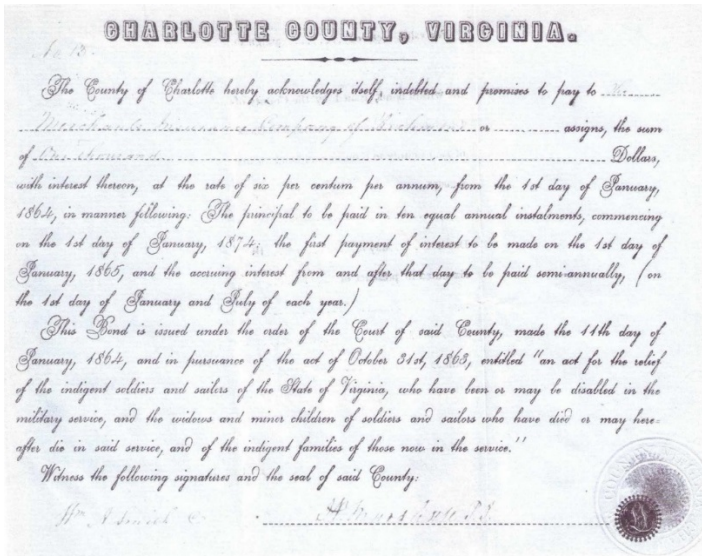 CHARLOTTE COUNTY, VIRGINIA.
No 13.
The County of Charlotte hereby acknowledges itself indebted and promises to pay to the
Merchants Insurance Company of Richmond or assigns, the sum
of One Thousand Dollars,
with interest thereon, at the rate of six per centum per annum, from the 1st day of January,
1864, in manner following: The principal to be paid in ten equal annual instalments, commencing
on the 1st day of January, 1874; the first payment of interest to be made on the 1st day of
January, 1865, and the accruing interest from and after that day to be paid semi-annually, (on
the 1st day of January and July of each year.)
This Bond is issued under the order of the Court of said County, made the 11th day of
January, 1864, and in pursuance of the act of October 31st, 1863, entitled "an act for the relief
of the indigent soldiers and sailors of the State of Virginia, who have been or may be disabled in the
military service, and the widows and minor children of soldiers and sailors who have died or may here=
after die in said service, and of the indigent families of those now in the service."
Witness the following signatures and the seal of said County:
Wm A. Smith